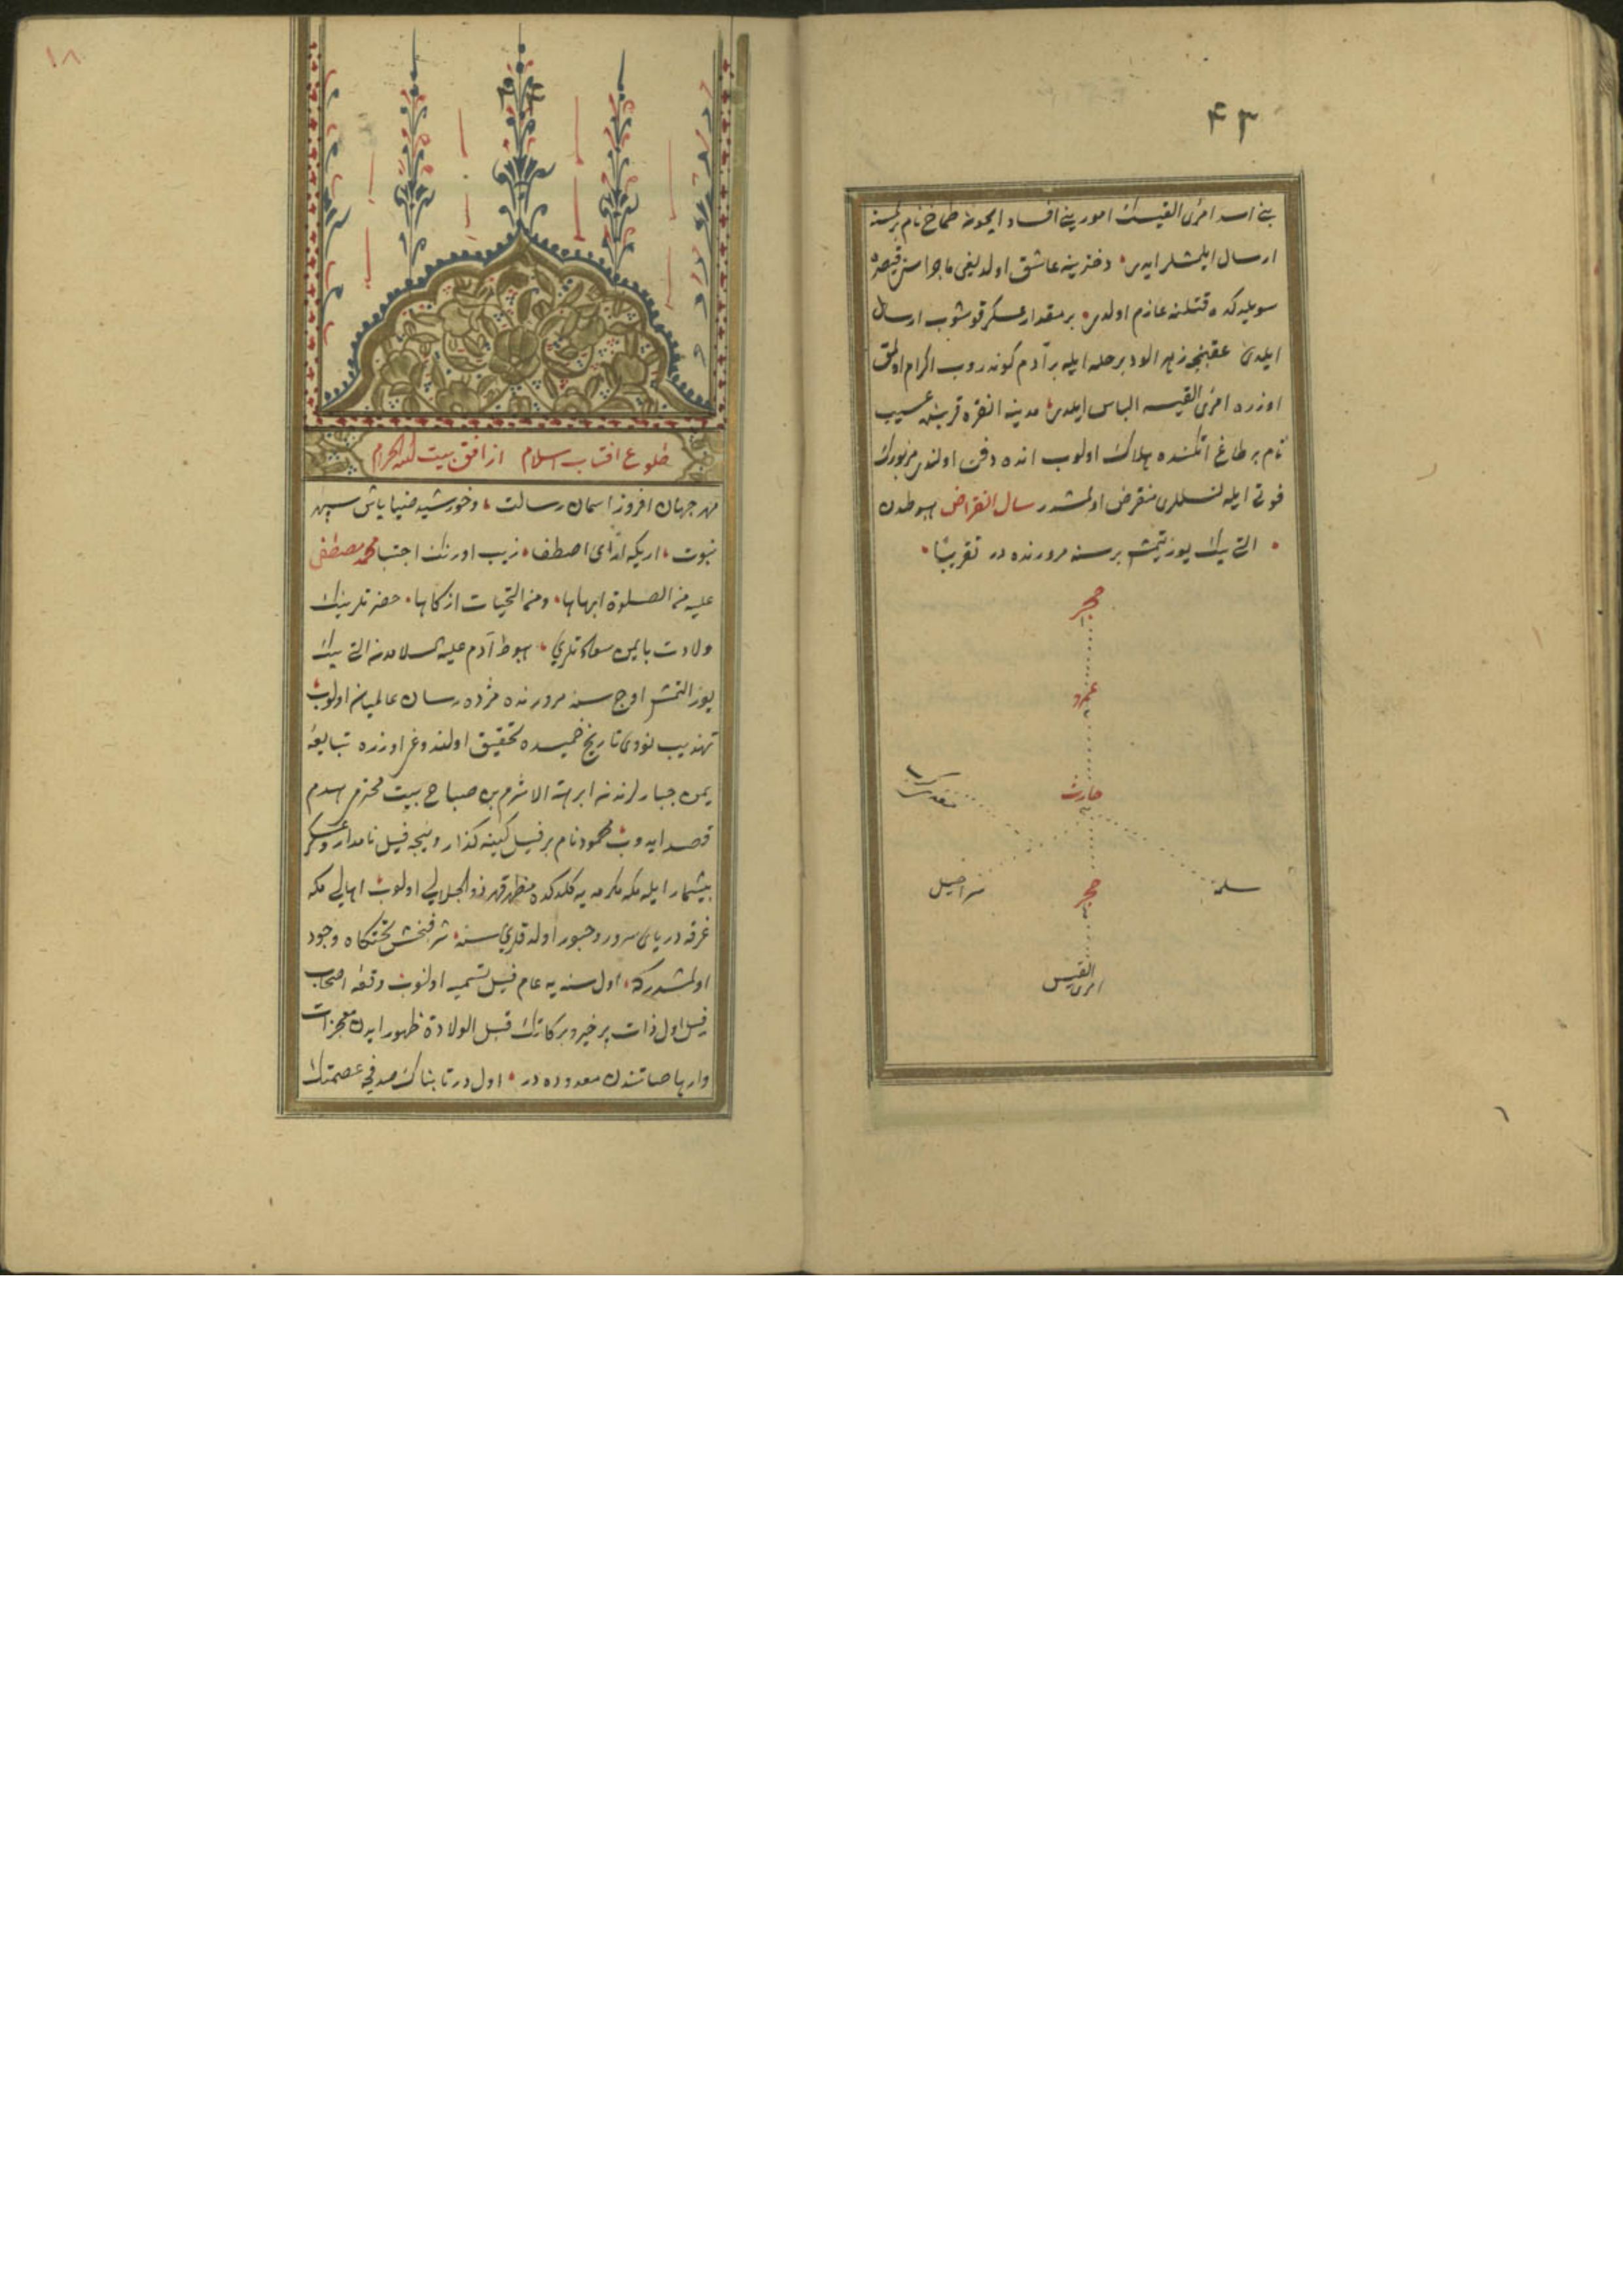 ۴۳
بنی اسد امرئ القیسك امورینی افساد ایچون طماح نام برکسنه
ارسال ایلمشلر ایدی دخترینه عاشق اولدیغی ماجراسن قیصره
سویلیدکده قتلنه عازم اولدی بر مقدار عسکر قوشوب ارسال
ایلدی عقبنجه زهر الود بر حله ایله بر آدم کوندروب اکرام اولمق
اوزره امرئ القیسه الباس ایلدی مدینه انقره قربنده عسیب
نام بر طاغ اتکنده هلاك اولوب انده دفن اولندی مزبورك
فوتی ایله نسللری منقرض اولمشدر سال انقراض هبوطدن
التی بیك یوز یتمش بر سنه مرورنده در تقریبًا
حجر
عمرو
حارث
معدی کرب
سلمه
حجر
شراحیل
امرئ القیس
۱۸
۴۴
طلوع افتاب اسلام از افق بیت الله الحرام
مهر جهان افروز اسمان رسالت وخورشید ضیا پاش سپهر
نبوت اریکه ارای اصطفا زیب اورنك اجتبا محمد مصطفی
علیه من الصلوة ابهاها ومن التحیات ازکاها حضرتلرینك
ولادت بایمن سعادتلری هبوط آدم علیه السلامدن التی بیك
یوز التمش اوچ سنه مرورنده مژده رسان عالمیان اولوب
تهذیب نووی تاریخ خمیسده تحقیق اولندوغی اوزره تبابعه
یمن جبارلرندن ابرهة الاشرم بن صباح بیت محترم هدم
قصد ایدوب محمود نام بر فیل کینه کذار ونیجه فیل نامدار وعسکر
بیشمار ایله مکه مکرمه یه کلدکده مظهر قهر ذو الجلالی اولوب اهالی مکه
غرقه دریای سرور وحبور اولدقلری سنه شرفبخش تختکاه وجود
اولمشدر که اول سنه یه عام فیل تسمیه اولنوب وقعه اصحاب
فیل اول ذات پر خیر وبرکاتك قبل الولادة ظهور ایدن معجزات
وارهاصاتندن معدوده در اول در تابناك صدفی عصمتك